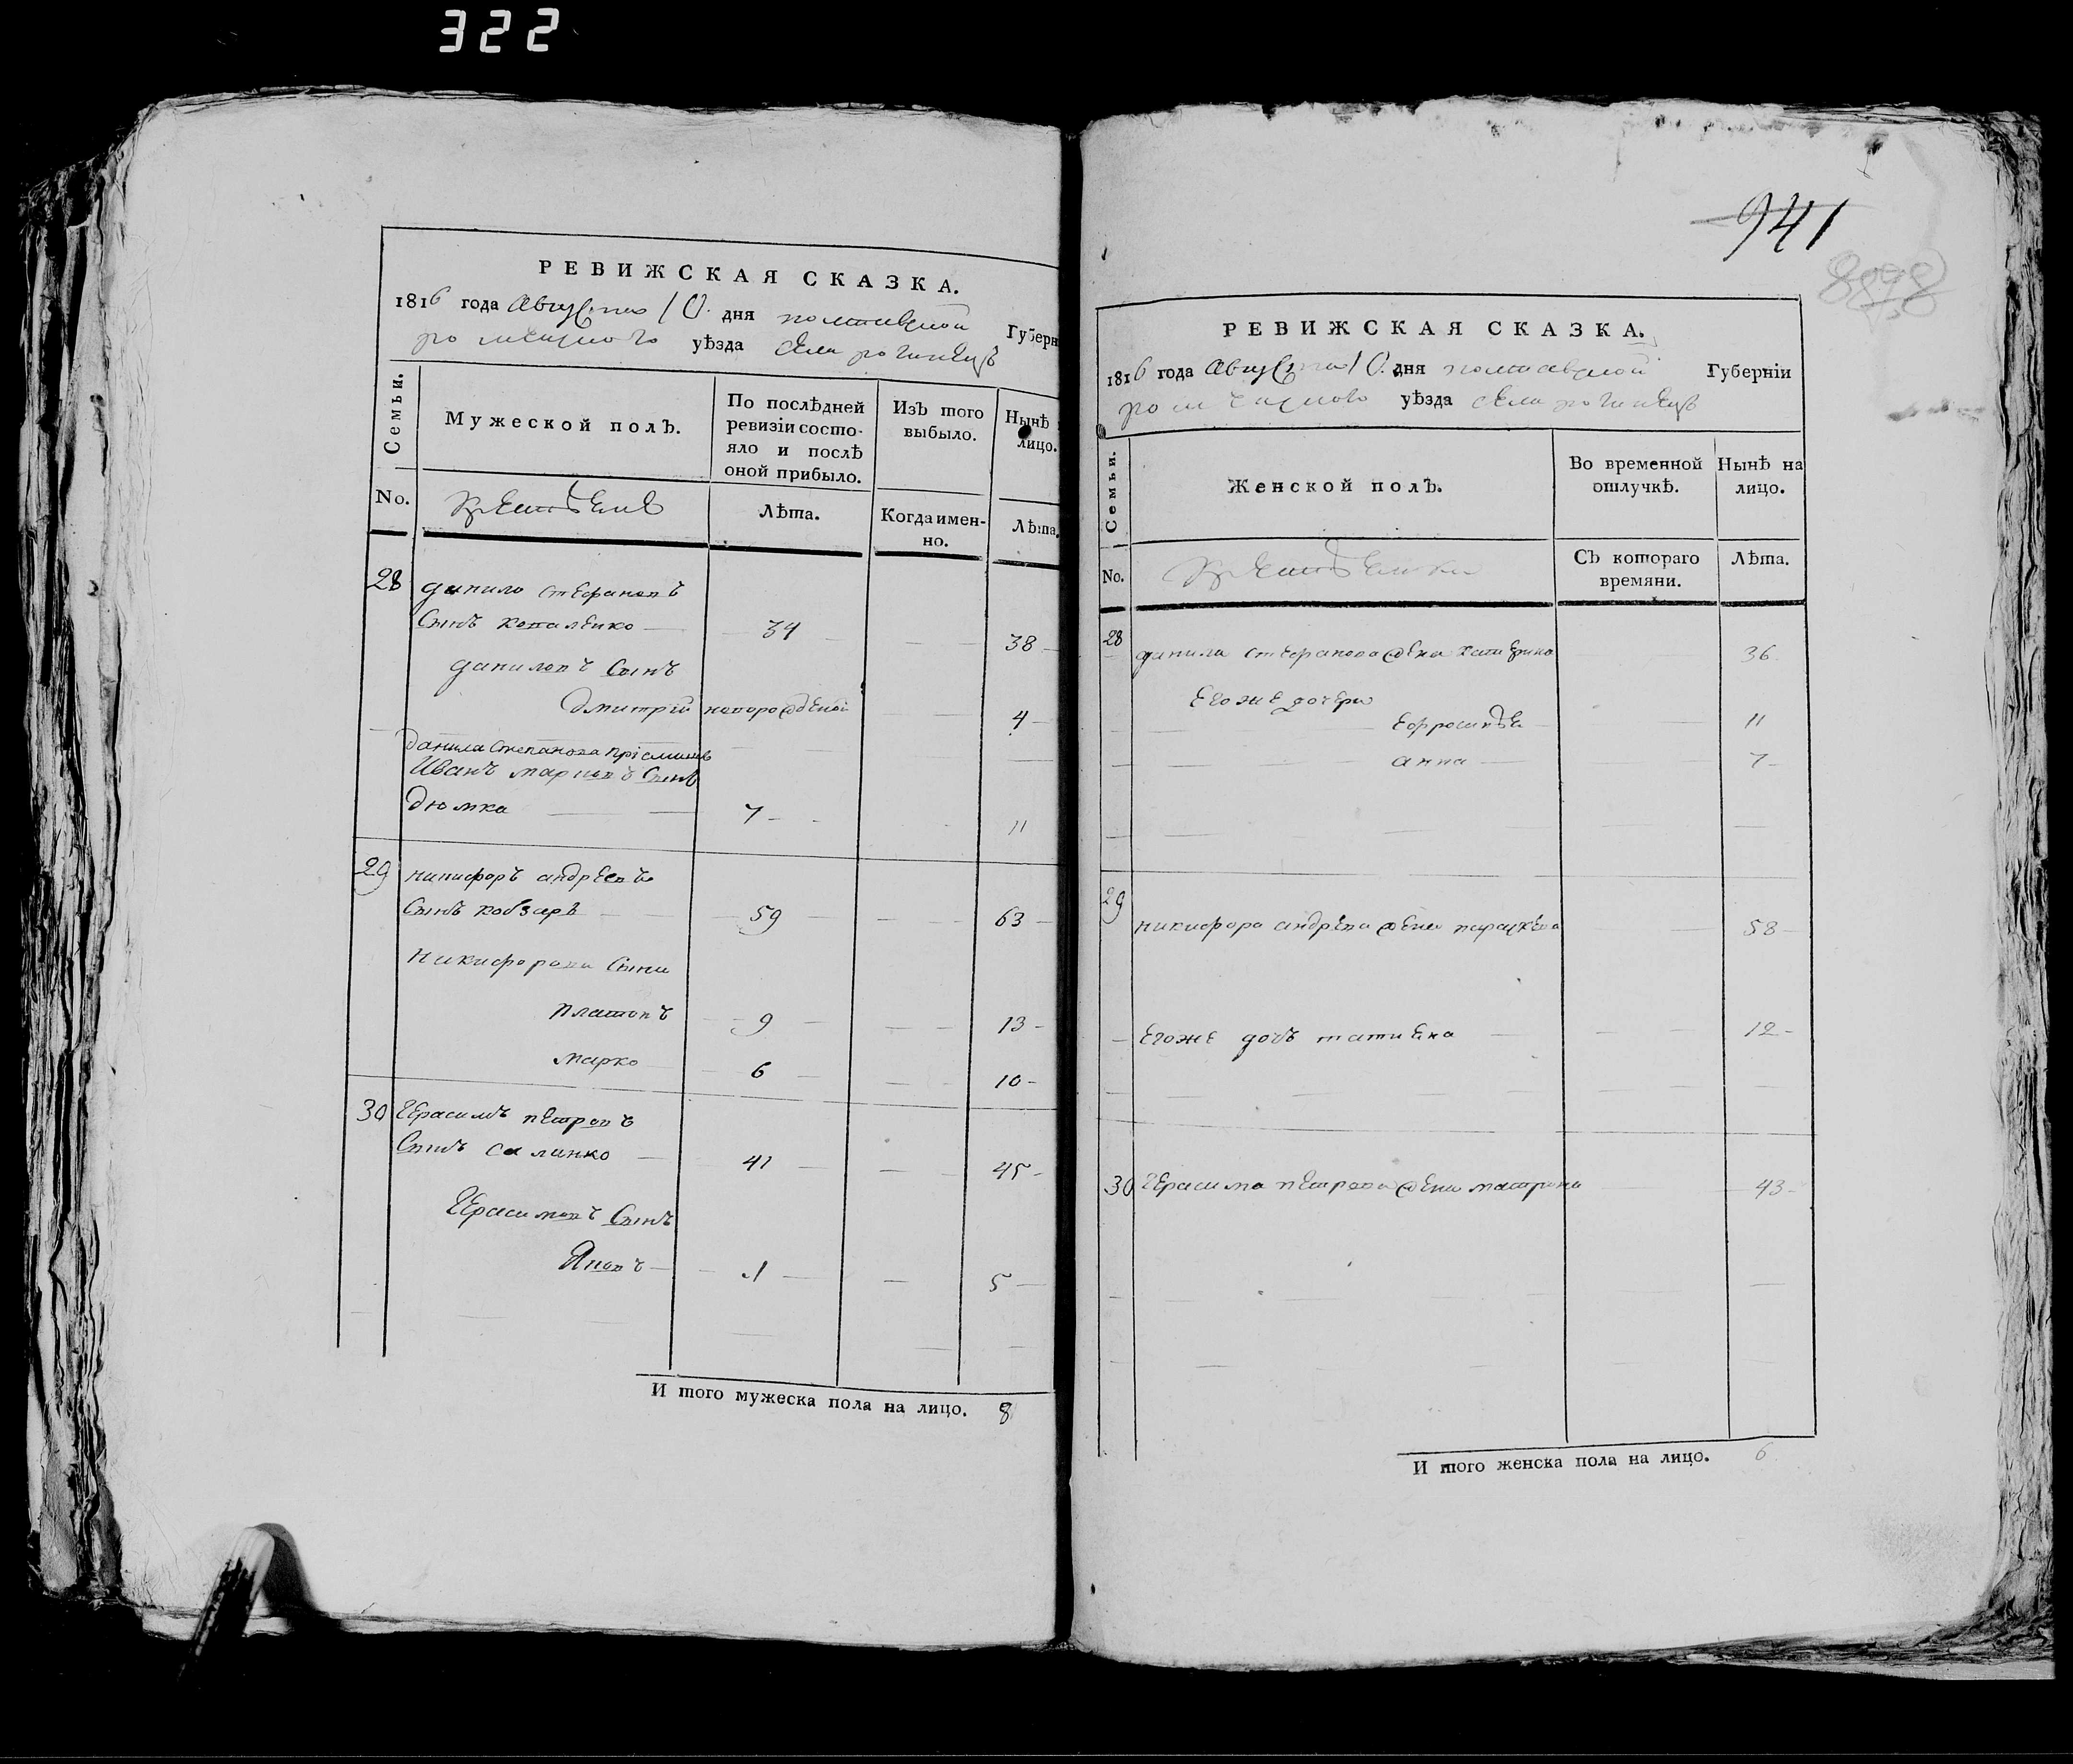 322
РЕВИЖСКАЯ СКАЗКА.
1816 года Августа 10. дня полтавской Губерн
роменского уѣзда села рогинецъ
Семьи.
Мужеской полъ.
По послѣдней ревизіи состояло и послѣ оной прибыло.
Изъ того выбыло.
Нынѣ лицо.
No.
Лѣта.
Когда именно.
Лѣта.
28 данило стефановъ
Сынъ коваленко 34 38
даниловъ Сынъ
Дмитрій новорожденой 4
Данила Степанова пріемышъ
Иванъ марковъ Сынъ
Дюмка 7 11
29 никифоръ андреевъ
Сынъ кобзаръ 59 63
Никифорови Сыни
платонъ 9 13
марко 6 10
30 Герасимъ петровъ
Сынъ саленко 41 45
Герасимовъ Сынъ
Яковъ 1 5
И того мужеска пола на лицо. 8
941
РЕВИЖСКАЯ СКАЗКА.
1816 года Августа 10. дня полтавской Губерніи
уѣзда села рогинецъ
Семьи.
Женской полъ.
Во временной отлучкѣ.
Нынѣ на лицо.
No.
Съ котораго времяни.
Лѣта.
28
данила стефанова жена катерина 36
Егоже дочери
Ефросинія 11
анна 7
29
никифора андрева жена параскева 58
Егоже дочъ татиена 12
30 Герасима петрова жена матрона 43
И того женска пола на лицо. 6